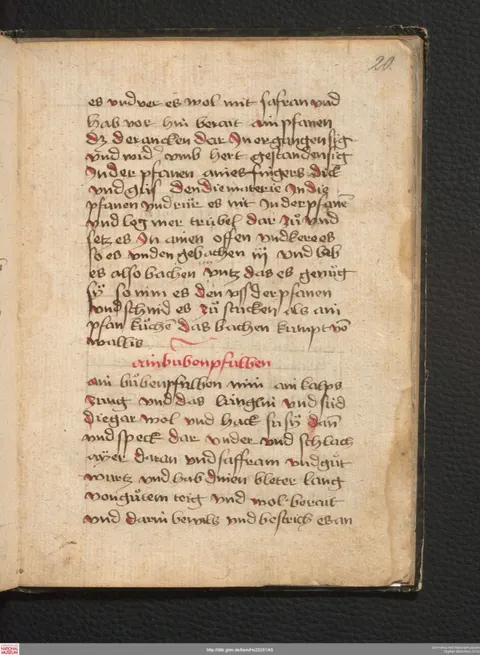 20.
es vnd ver es wol mit safran vnd
hab vor hin berait ain pfanen
dz der ancken dar In ergangen sig
vnd wid vmb hert gestanden sig
In der pfanen aines fingers dick
vnd güs den die materie In die
pfanen vnd rür es nit In der pfanē
vnd leg mer trübel dar zů vnd
setz es In ainen offen vnd kere es
so es vnden gebachen iij vnd
es also bachen vntz das es genůg
sÿ so nim es den vss der pfanen
vnd schnid es zů stucken als ain
pfan kůchē das bachen kumpt vō
wallis
ain bubenpfulwen
ain bůbenpfulwen nim ain kalps
vnd das lünglin vnd süd
die gar wol vnd hack su sÿ dan
vnd speck dar vnder vnd schlach
ayer daran vnd saffram vnd gůt
wurtz vnd hab dinen bleter lang
von gůtem teig vnd wol berait
vnd darin bewils vnd bestrich es an
http://dlib.gnm.de/item/Hs20291/45